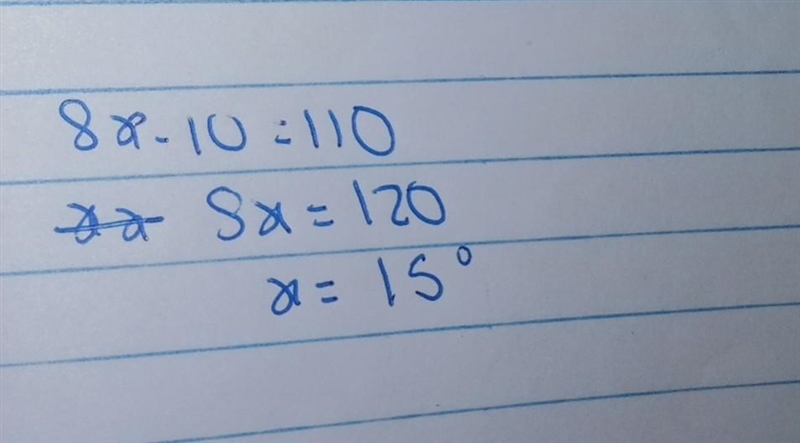 8x - 10 = 110
8x = 120
x = 15°